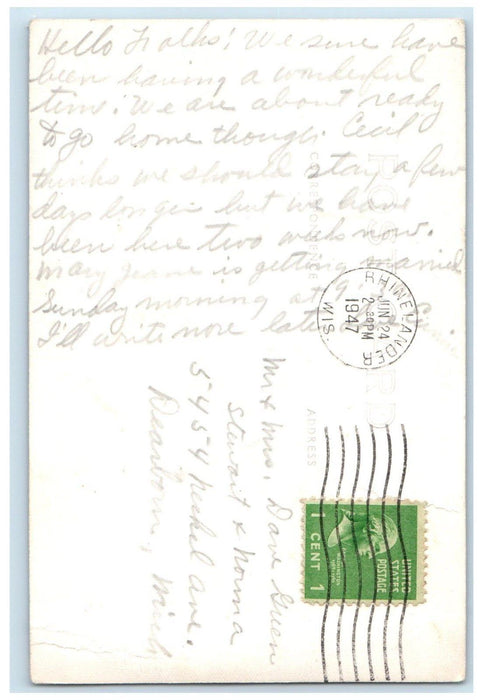 Hello Folks! We sure have
been having a wonderful
time. We are about ready
to go home though. Cecil
thinks we should stay a few
days longer but we have
been here two weeks now.
Mary Jeane is getting married
Sunday morning at 9
I'll write more later
POST CARD
CORRESPONDENCE
ADDRESS
RHINELANDER
JUN 24
2:30PM
1947
WIS.
Mr & Mrs. Dave Green
Stewart & Norma
5454 Neckel Ave.
Dearborn, Mich
UNITED
STATES
POSTAGE
WASHINGTON
1 CENT 1